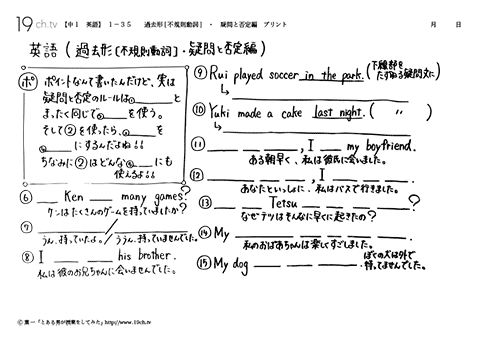 19 ch.tv 【中1 英語】 1－35 過去形[不規則動詞]・疑問と否定編 プリント 月 日
英語（過去形[不規則動詞]・疑問と否定編）
ポ ポイントなんて書いたんだけど、実は
疑問と否定のルールは①______と
まったく同じで②______を使う。
そして②を使ったら、③______を
④______にするんだよね!!
ちなみに②はどんな⑤______にも
使えるよ!!
⑥ ____ Ken ____ many games?
ケンはたくさんのゲームを持っていましたか?
⑦ ______/______
うん、持っていたよ。/ううん、持っていませんでした。
⑧ I ____ ____ his brother.
私は彼のお兄ちゃんに会いませんでした。
⑨ Rui played soccer in the park. (下線部をたずねる疑問文に)
↳
⑩ Yuki made a cake last night. ( 〃 )
↳
⑪ ____ ____ ____, I ____ my boyfriend.
ある朝早く、私は彼氏に会いました。
⑫ ____ ____, I ____ ____ ____.
あなたといっしょに、私はバスで行きました。
⑬ ____ ____ Tetsu ____ ____ ____?
なぜテツはそんなに早くに起きたの?
⑭ My ____ ____ ____ ____ ____.
私のおばあちゃんは楽しくすごしました。
⑮ My dog ____ ____ ____ ____.
ぼくの犬は外で
待ってませんでした。
© 葉一「とある男が授業をしてみた」http://www.19ch.tv